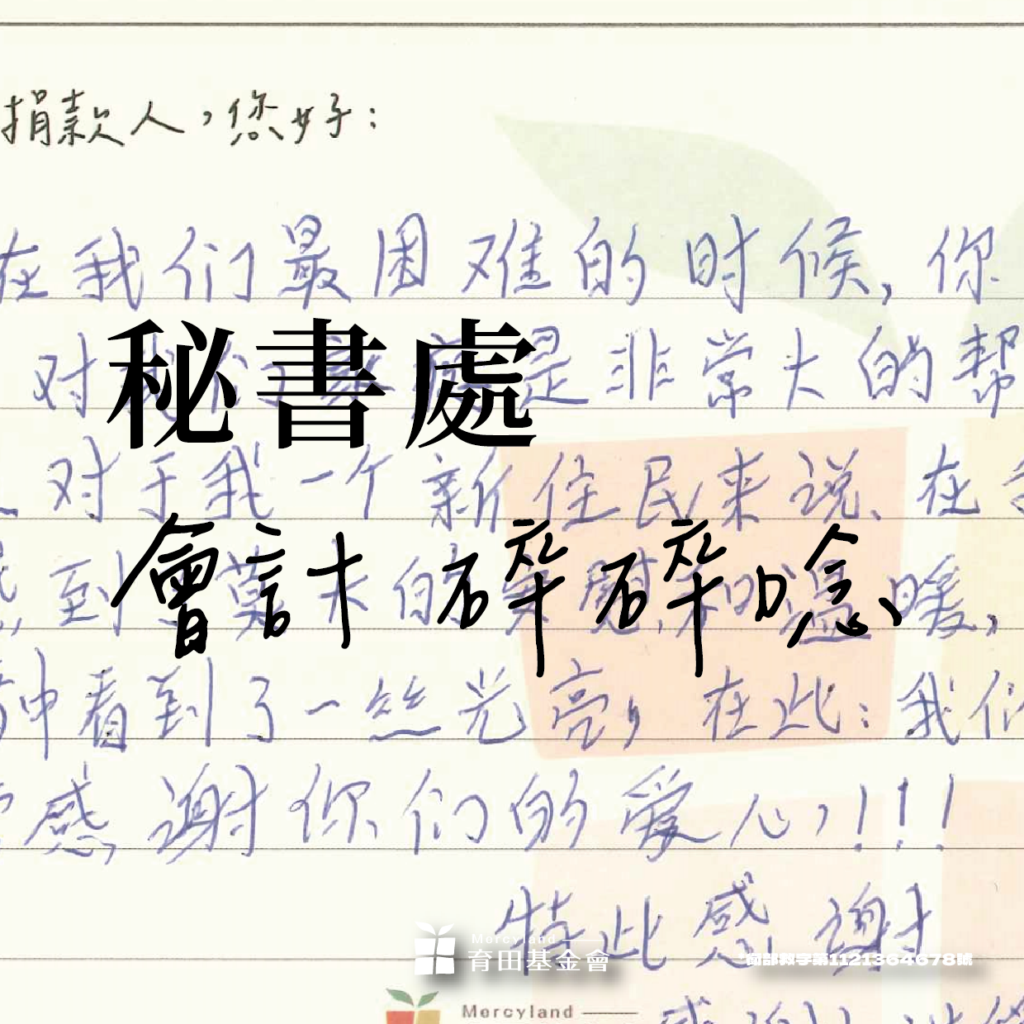 捐款人,您好:
在我们最困难的时候,你
对我 是非常大的帮
秘書處
对于我一个新住民来说、在
感到 莫大的 慰和温暖,
會計碎碎唸
中看到了一丝光亮,在此:我们
感谢你们的爱心,!!!
特此感谢
Mercyland
育田基金會
衛部救字第1121364678號
Mercyland
感谢